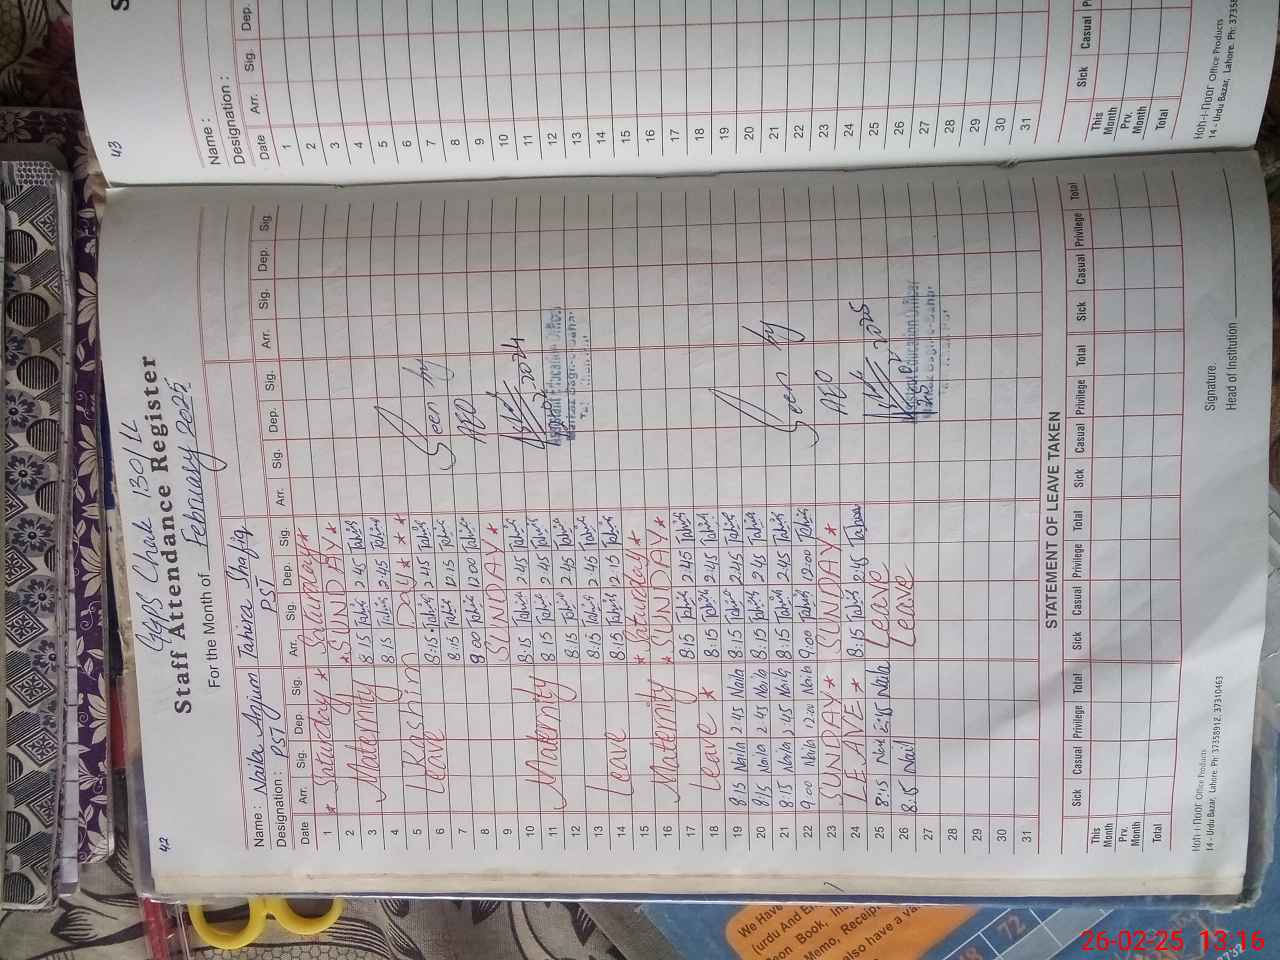 42
GGPS Chak 130/LL
Staff Attendance Register
For the Month of February 2025
Name : Naila Anjum Tahira Shafiq
Designation : PST PST
Date Arr. Sig. Dep. Sig. Arr. Sig. Dep. Sig. Arr. Sig. Dep. Sig. Arr. Sig. Dep. Sig.
1 * Saturday * Saturday *
2 * SUNDAY *
3 Maternity 8:15 Tahira 2:45 Tahira
4 8:15 Tahira 2:45 Tahira
5 Kashmir Day * *
6 Leave 8:15 Tahira 2:45 Tahira
7 8:15 Tahira 12:15 Tahira
8 9:00 Tahira 12:00 Tahira
9 SUNDAY *
10 8:15 Tahira 2:45 Tahira
11 Maternity 8:15 Tahira 2:45 Tahira
12 8:15 Tahira 2:45 Tahira
13 8:15 Tahira 2:45 Tahira
14 Leave 8:15 Tahira 12:15 Tahira
15 * Saturday *
16 Maternity * SUNDAY *
17 8:15 Tahira 2:45 Tahira
18 Leave * 8:15 Tahira 2:45 Tahira
19 8:15 Naila 2:45 Naila 8:15 Tahira 2:45 Tahira
20 8:15 Naila 2:45 Naila 8:15 Tahira 2:45 Tahira
21 8:15 Naila 2:45 Naila 8:15 Tahira 2:45 Tahira
22 9:00 Naila 12:00 Naila 9:00 Tahira 12:00 Tahira
23 SUNDAY * SUNDAY *
24 LEAVE * 8:15 Tahira 2:45 Tahira
25 8:15 Naila 2:45 Naila Leave
26 8:15 Naila Leave
27
28
29
30
31
Seen by
AEO
2024
Assistant Education Officer
Seen by
AEO
2025
Assistant Education Officer
STATEMENT OF LEAVE TAKEN
Sick Casual Privilege Total Sick Casual Privilege Total Sick Casual Privilege Total Sick Casual Privilege Total
This Month
Prv. Month
Total
Signature.
Head of Institution
Koh-i-Noor Office Products
14 - Urdu Bazar, Lahore. Ph: 37358912, 37310463
43
S
Name :
Designation :
Date Arr. Sig. Dep.
1
2
3
4
5
6
7
8
9
10
11
12
13
14
15
16
17
18
19
20
21
22
23
24
25
26
27
28
29
30
31
Sick Casual
This Month
Prv. Month
Total
Koh-i-Noor Office Products
14 - Urdu Bazar, Lahore. Ph:
We Have
(urdu And
Book,
Memo, Receip
also have a
72
26-02-25 13:16